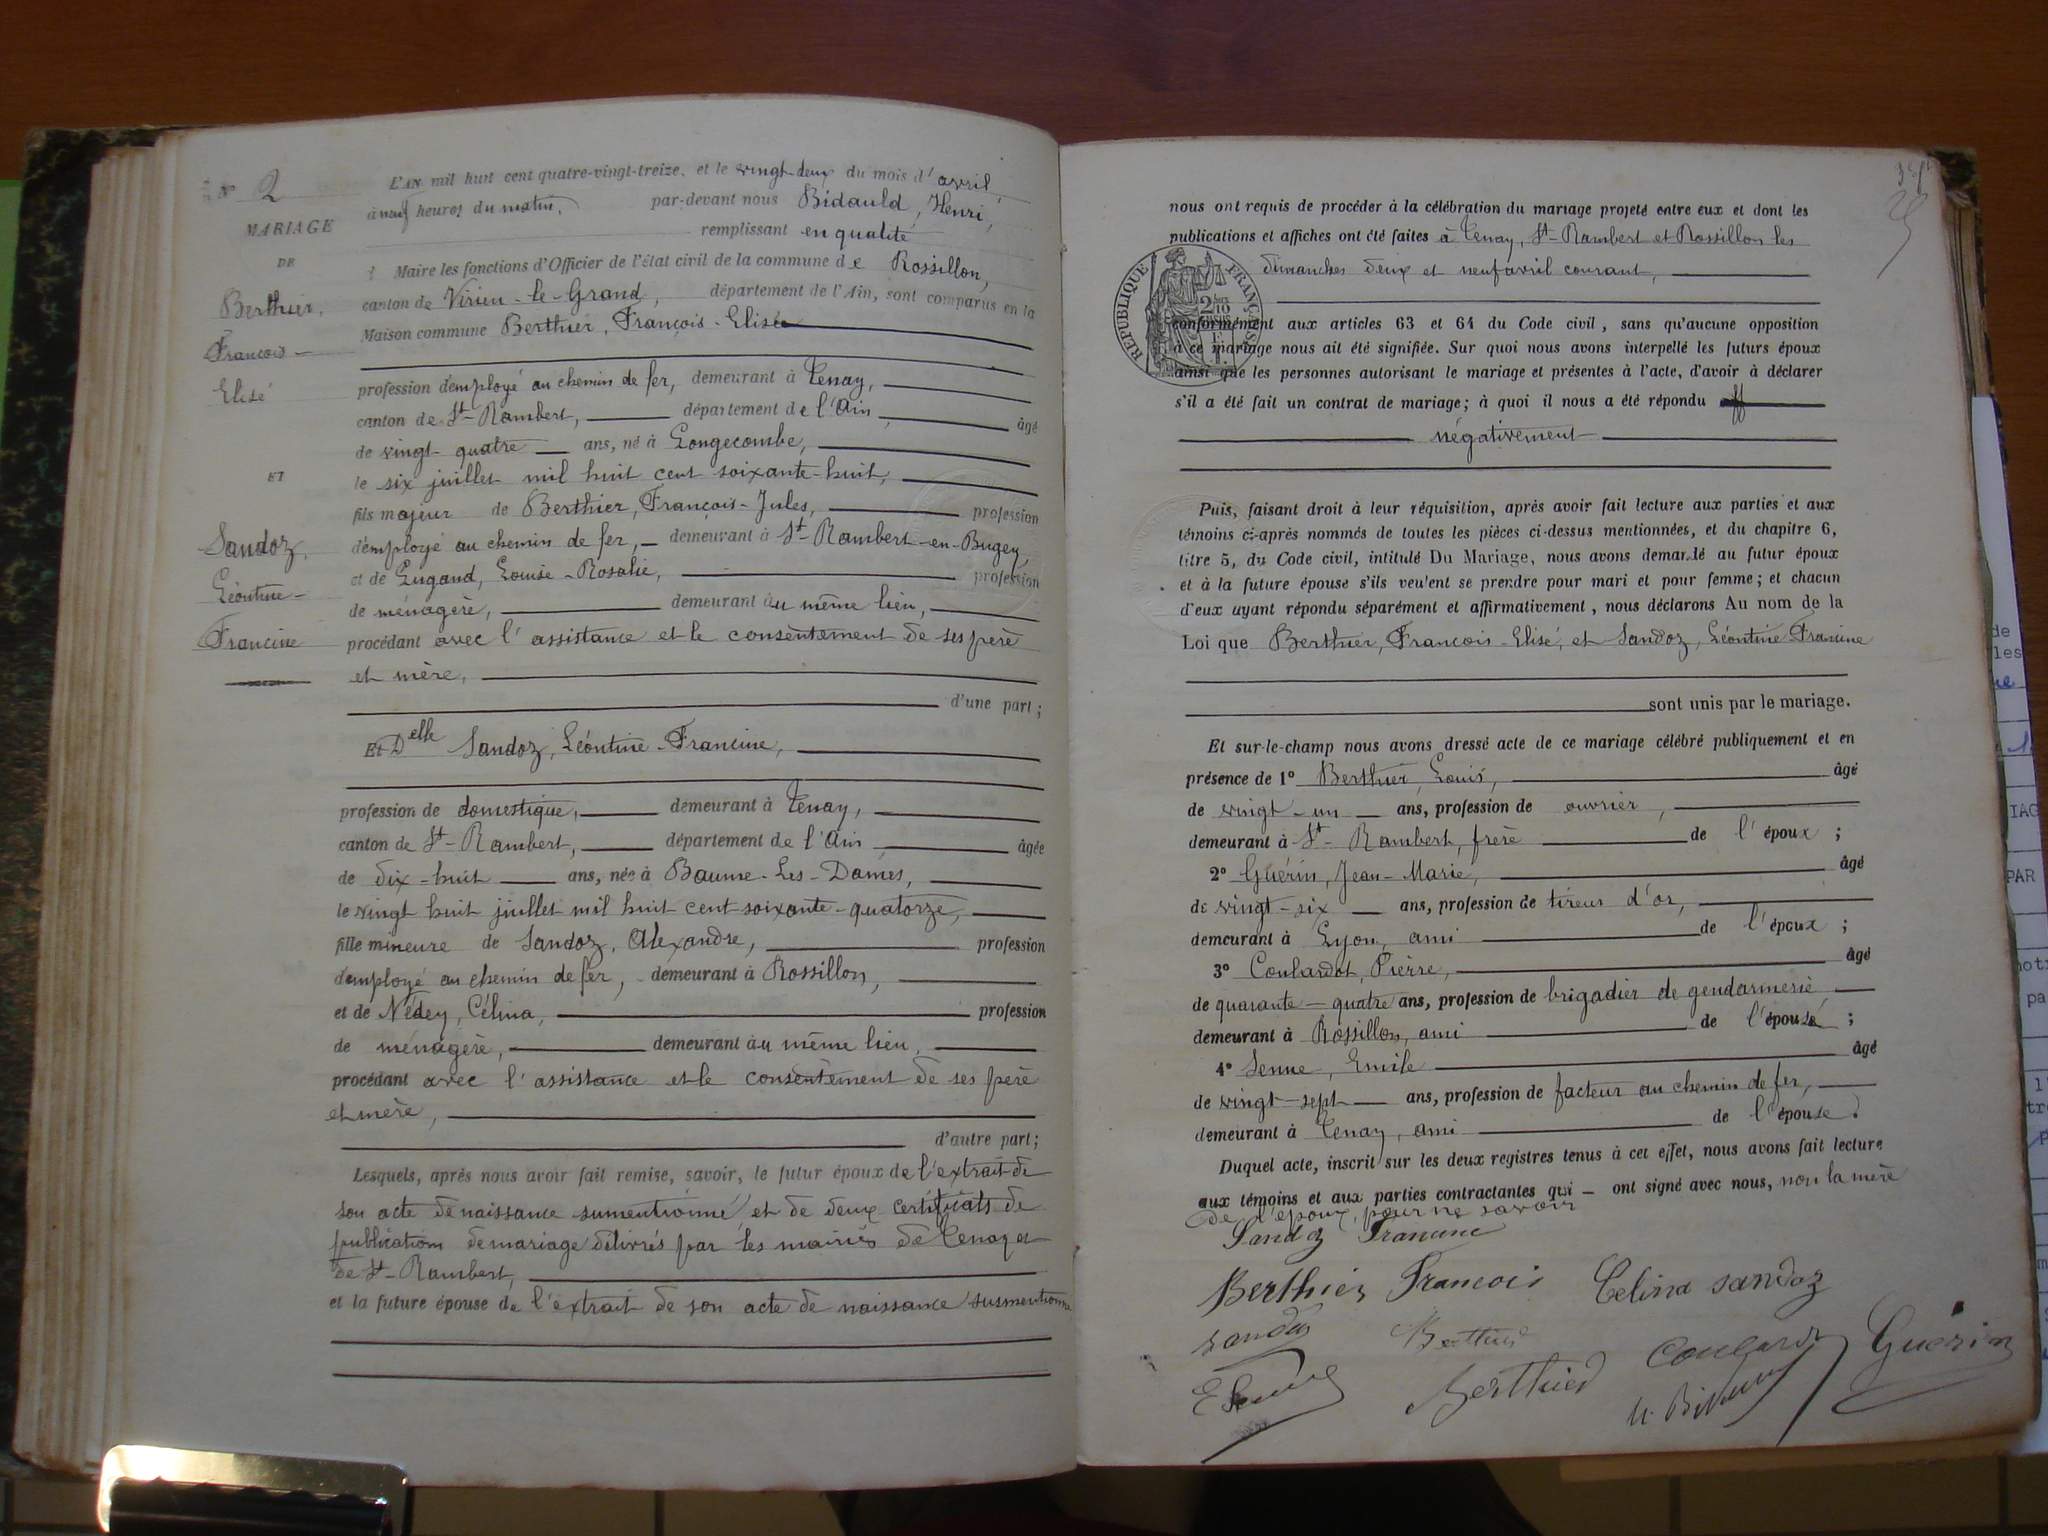 N° 2
MARIAGE
DE
Berthier,
François-
Elisé
ET
Sandoz,
Léontine-
Francine
L'AN mil huit cent quatre-vingt-treize, et le vingt-deux du mois d'avril
à neuf heures du matin, par-devant nous Bidauld, Henri,
remplissant en qualité
Maire les fonctions d'Officier de l'état civil de la commune de Rossillon,
canton de Virieu-le-Grand, département de l'Ain, sont comparus en la
Maison commune Berthier, François-Elisé
profession d'employé au chemin de fer, demeurant à Tenay,
canton de St-Rambert, département de l'Ain, âgé
de vingt-quatre ans, né à Longecombe,
le six juillet mil huit cent soixante-huit,
fils majeur de Berthier, François-Jules, profession
d'employé au chemin de fer, demeurant à St-Rambert-en-Bugey
et de Lugand, Louise-Rosalie, profession
de ménagère, demeurant au même lieu,
procédant avec l'assistance et le consentement de ses père
et mère,
d'une part;
Et Delle Sandoz, Léontine-Francine,
profession de domestique, demeurant à Tenay,
canton de St-Rambert, département de l'Ain âgée
de dix-huit ans, née à Baume-Les-Dames,
le vingt huit juillet mil huit cent soixante-quatorze,
fille mineure de Sandoz, Alexandre, profession
d'employé au chemin de fer, demeurant à Rossillon,
et de Nédey, Célina, profession
de ménagère, demeurant au même lieu,
procédant avec l'assistance et le consentement de ses père
et mère,
d'autre part;
Lesquels, après nous avoir fait remise, savoir, le futur époux de l'extrait de
son acte de naissance susmentionné, et de deux certificats de
publications de mariage délivrés par les mairies de Tenay et
de St-Rambert,
et la future épouse de l'extrait de son acte de naissance susmentionné
nous ont requis de procéder à la célébration du mariage projeté entre eux et dont les
publications et affiches ont été faites à Tenay, St-Rambert et Rossillon les
dimanches deux et neuf avril courant,
RÉPUBLIQUE FRANÇAISE
conformément aux articles 63 et 64 du Code civil, sans qu'aucune opposition
à ce mariage nous ait été signifiée. Sur quoi nous avons interpellé les futurs époux
ainsi que les personnes autorisant le mariage et présentes à l'acte, d'avoir à déclarer
s'il a été fait un contrat de mariage; à quoi il nous a été répondu
négativement
Puis, faisant droit à leur réquisition, après avoir fait lecture aux parties et aux
témoins ci-après nommés de toutes les pièces ci-dessus mentionnées, et du chapitre 6,
titre 5, du Code civil, intitulé Du Mariage, nous avons demandé au futur époux
et à la future épouse s'ils veulent se prendre pour mari et pour femme; et chacun
d'eux ayant répondu séparément et affirmativement, nous déclarons Au nom de la
Loi que Berthier, François-Elisé, et Sandoz, Léontine Francine
sont unis par le mariage.
Et sur-le-champ nous avons dressé acte de ce mariage célébré publiquement et en
présence de 1° Berthier, Louis, âgé
de vingt-un ans, profession de ouvrier,
demeurant à St-Rambert, frère de l'époux;
2° Guérin, Jean-Marie, âgé
de vingt-six ans, profession de tireur d'or,
demeurant à Lyon, ami de l'époux;
3° Coulardot, Pierre, âgé
de quarante-quatre ans, profession de brigadier de gendarmerie
demeurant à Rossillon, ami de l'épouse;
4° Senne, Emile âgé
de vingt-sept ans, profession de facteur au chemin de fer,
demeurant à Tenay, ami de l'épouse.
Duquel acte, inscrit sur les deux registres tenus à cet effet, nous avons fait lecture
aux témoins et aux parties contractantes qui ont signé avec nous, non la mère
de l'époux, pour ne savoir
Sandoz Francine
Berthier François Celina Sandoz
Sandoz Berthier
Guérin
Berthier